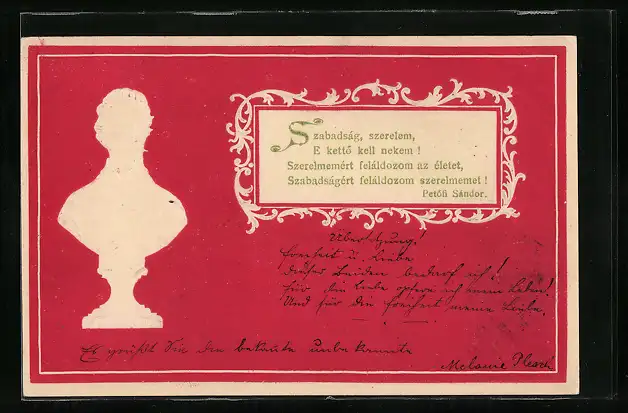 Szabadság, szerelem,
E kettő kell nekem !
Szerelmemért feláldozom az életet,
Szabadságért feláldozom szerelmemet !
Petőfi Sándor.
Übersetzung!
Freiheit u. Liebe
dieser beiden bedarf ich !
für die Liebe opfere ich mein Leben!
Und für die Freiheit meine Liebe.
Es grüßt Sie die bekannte unbekannte
Melanie